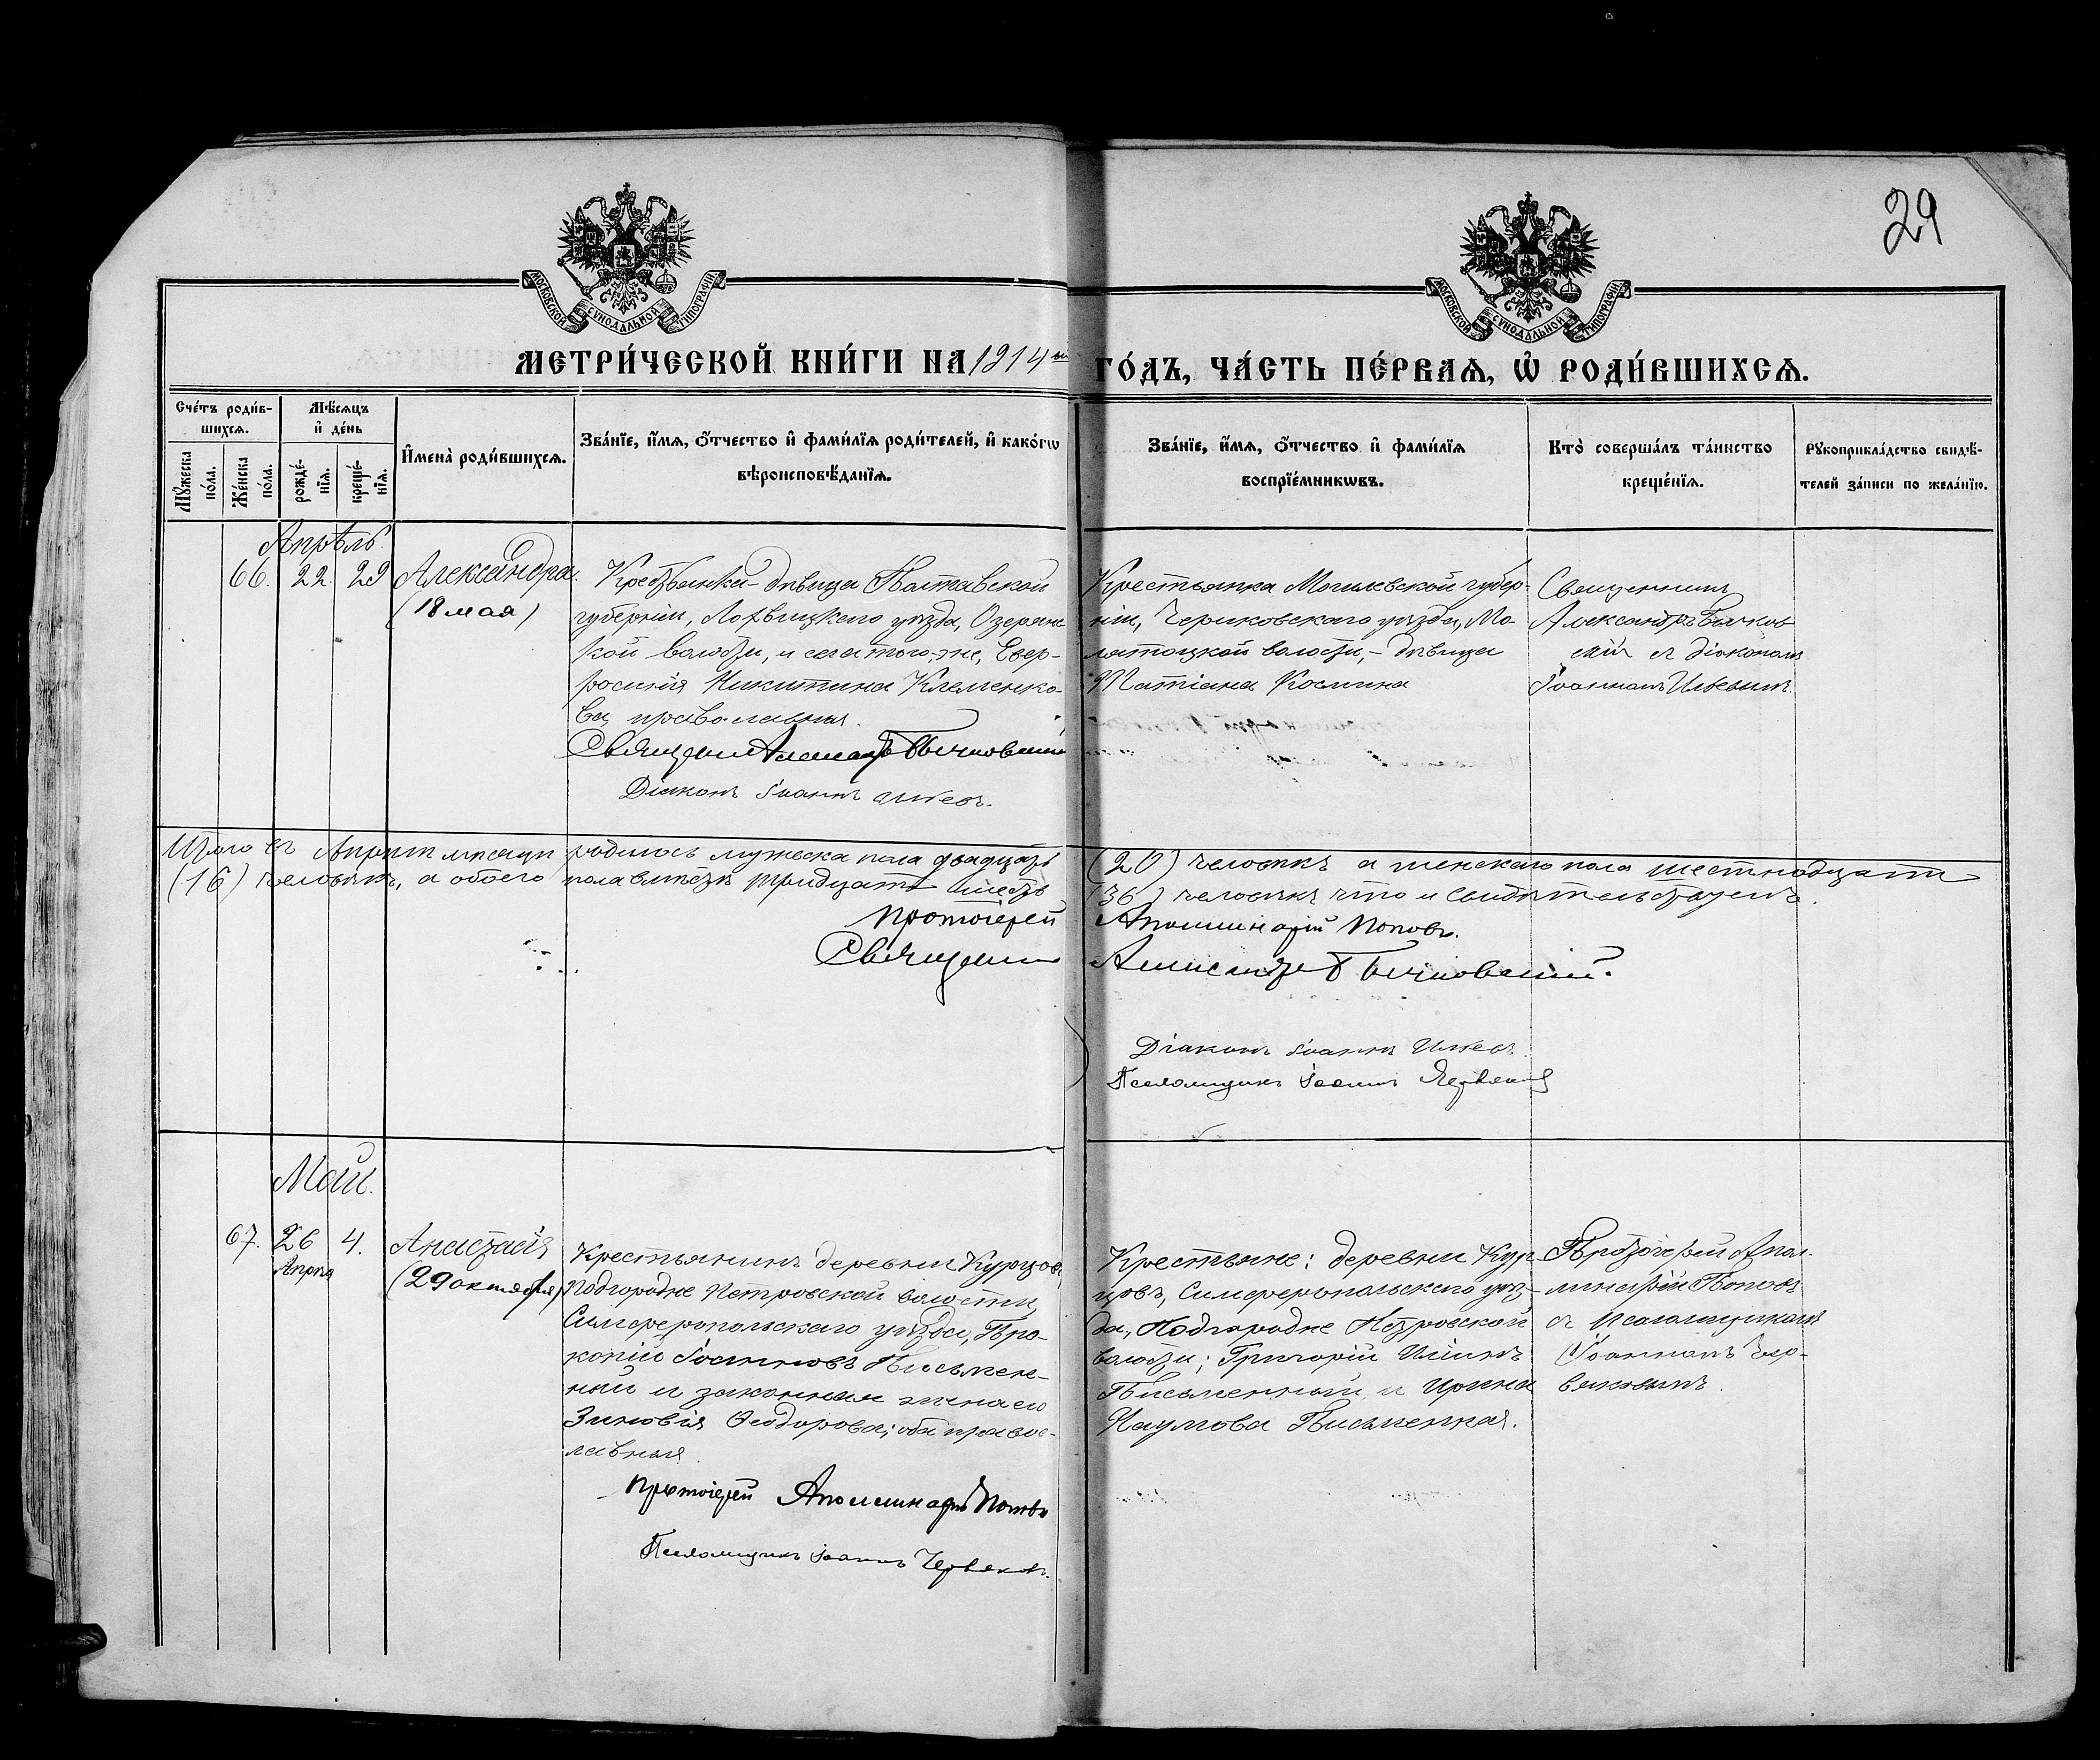 29
МОСКОВСКОЙ СѴНОДАЛЬНОЙ ТИПОГРАФІИ
МОСКОВСКОЙ СѴНОДАЛЬНОЙ ТИПОГРАФІИ
МЕТРИ́ЧЕСКОЙ КНИ́ГИ НА 1914ый ГО́ДЪ, ЧА́СТЬ ПЕ́РВАѦ, Ѽ РОДИ́ВШИХСѦ.
Сче́тъ роди́в-
шихсѧ.
Мꙋ́жеска по́ла.
Же́нска по́ла.
Мѣ́сѧцъ
и҆ де́нь
рожде́-
нїѧ.
креще́-
нїѧ.
И҆мена̀ роди́вшихсѧ.
Зва́нїе, и҆́мѧ, ѻ҆́тчество и҆ фами́лїѧ роди́телей, и҆ како́гѡ
вѣроисповѣ́данїѧ.
Зва́нїе, и҆́мѧ, ѻ҆́тчество и҆ фами́лїѧ
воспрїе́мникѡвъ.
Кто̀ соверша́лъ та́инство
креще́нїѧ.
Рꙋкоприкла́дство свидѣ́-
телей за́писи по жела́нїю.
Апрѣль
66. 22. 29
Александра
(18 мая)
Крестьянка-дѣвица Полтавской
губерніи, Лохвицкаго уѣзда, Озерянс
кой волости, и села того-же, Евф-
росинія Никитина Клеменко-
ва, православная.
Священникъ Александръ Бычковскій
Діаконъ Іоаннъ Ильевъ.
Крестьянка Могилевской губер-
ніи, Чериковскаго уѣзда, Мо-
лятоцкой волости, - дѣвица
Татіана Космина
Священникъ
Александръ Бычков
скій съ діакономъ
Іоанномъ Ильевымъ.
Итого въ Апрѣлѣ мѣсяцѣ родилось мужеска пола двадцать (20) человѣкъ а женскаго пола шестнадцать
(16) человѣкъ, а обоего пола вмѣстѣ тридцать шесть (36) человѣкъ что и свидѣтельствуемъ.
Протоіерей Аполлинарій Поповъ.
Священникъ Александръ Бычковскій.
Діаконъ Іоаннъ Ильевъ.
Псаломщикъ Іоаннъ Червяковъ
Май.
67. 26 4.
Апрѣля
Анастасія
(29 октября)
Крестьянинъ деревни Курцовъ,
Подгородне Петровской волости,
Симферопольскаго уѣзда, Про-
копій Іоанновъ Письмен-
ный и законная жена его
Зиновія Ѳеодорова; оба правос-
лавныя.
Протоіерей Аполлинарій Поповъ
Псаломщикъ Іоаннъ Червяковъ.
Крестьяне: деревни Кур-
цовъ, Симферопольскаго уѣз-
да, Подгородне Петровской
волости; Григорій
Письменный и Ирина
Наумова Письменная.
Протоіерей Апол-
линарій Поповъ
съ псаломщикомъ
Іоанномъ Чер-
вяковымъ.